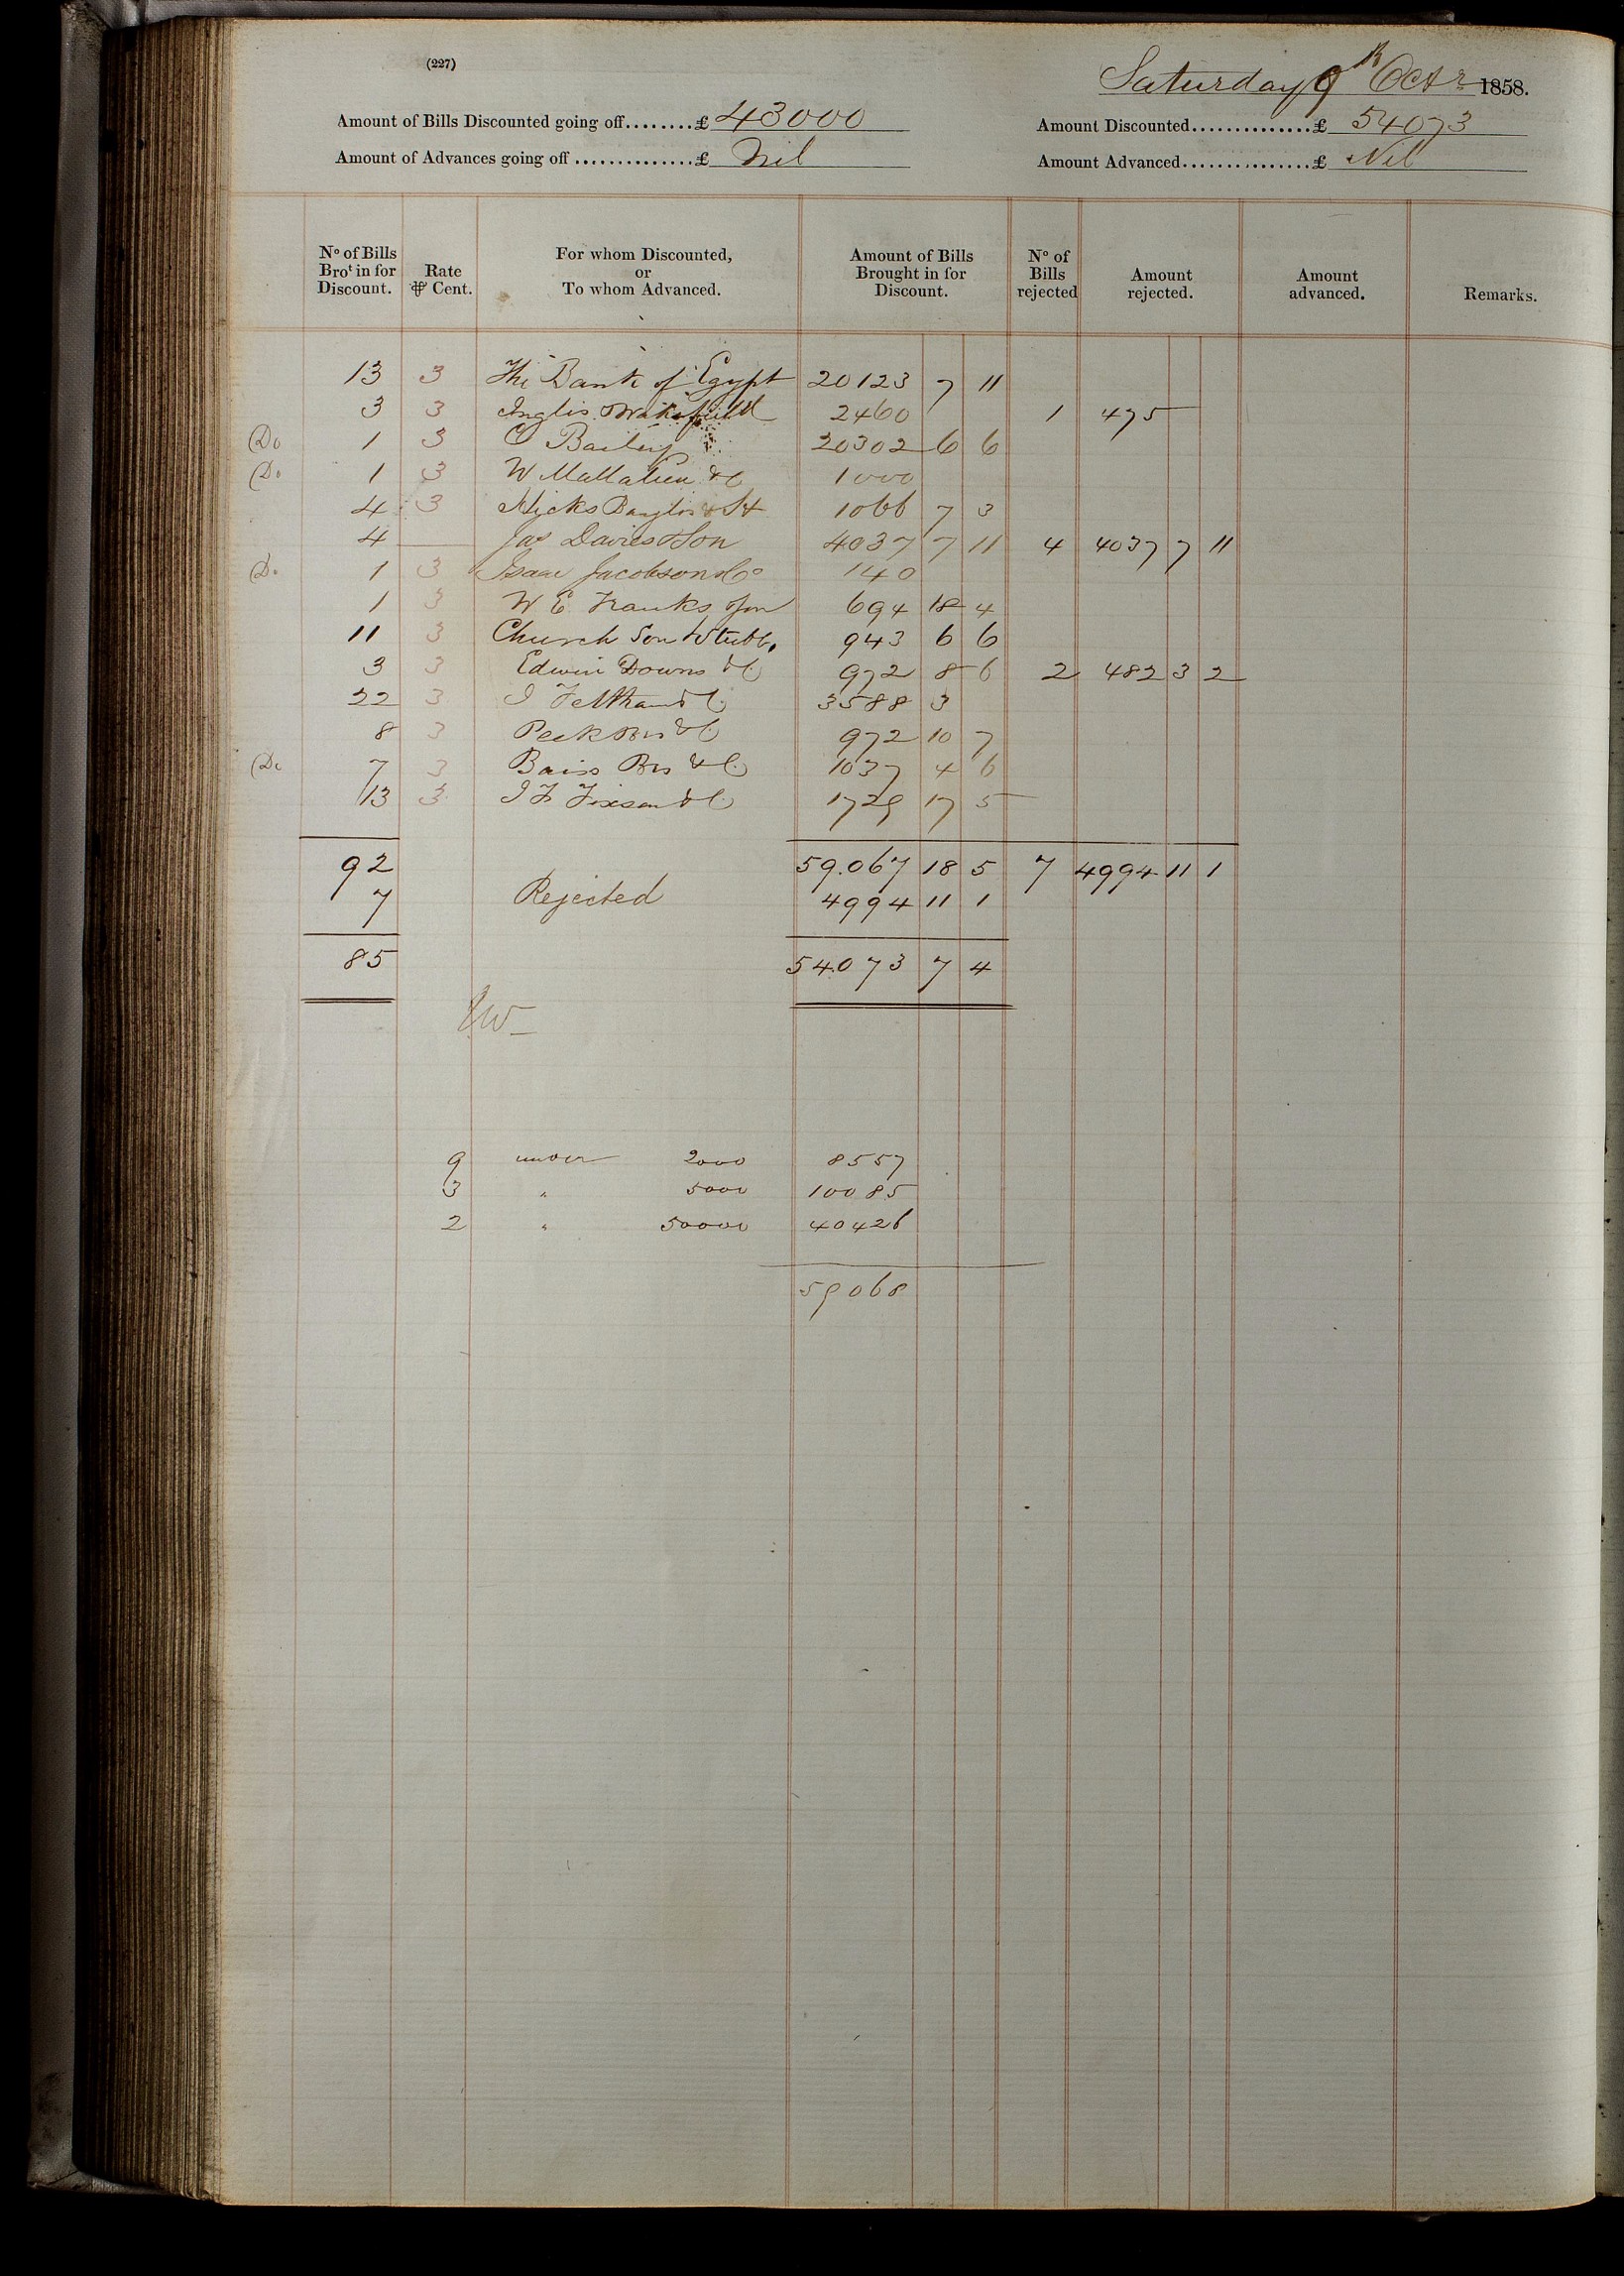 (227)
Saturday 9th Octr 1858.
Amount of Bills Discounted going off........£ 43000
Amount Discounted..............£ 54073
Amount of Advances going off..............£ Nil
Amount Advanced...............£ Nil
No of Bills Brot in for Discount. Rate ⅌ Cent. For whom Discounted, or To whom Advanced. Amount of Bills Brought in for Discount. No of Bills rejected Amount rejected. Amount advanced. Remarks.
13 3 The Bank of Egypt 20123 7 11
3 3 Inglis Wakefield 2460 1 475
Do 1 3 C Bailey 20302 6 6
Do 1 3 W Mallalieu &C 1000
4 3 Hicks Bayliss & 1066 7 3
4 — Jas Davies & Son 4037 7 11 4 4037 7 11
Do 1 3 Isaac Jacobson &Co 140
1 3 W E Franks & Son 694 18 4
11 3 Church Son & Stubb. 943 6 6
3 3 Edwin Downs &C 972 8 6 2 482 3 2
22 3 I Feltham &C 3588 3
8 3 Peek Brs &C 972 10 7
Do 7 3 Baiss Brs &C 1037 4 6
13 3 I F &C 1729 17 5
92 59.067 18 5 7 4994 11 1
7 Rejected 4994 11 1
85 54.073 7 4
9 under 2000 8557
3 " 5000 10085
2 " 50000 40426
59068